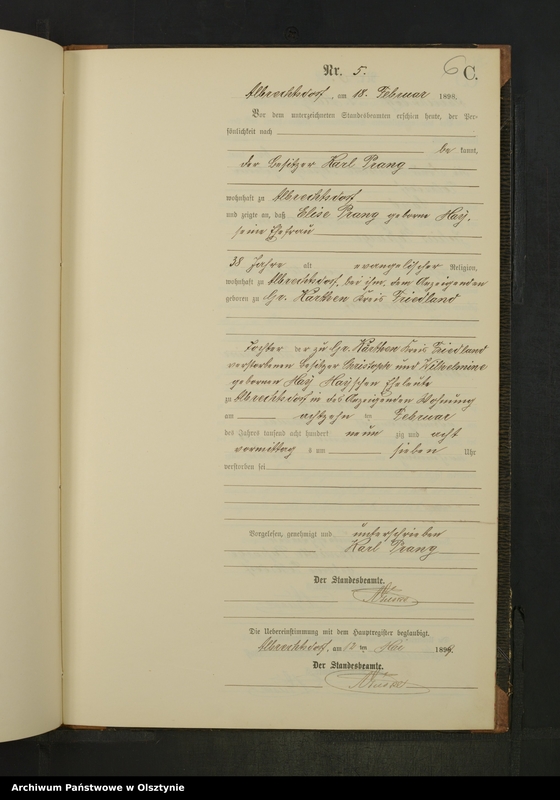 Nr. 5.
6 C.
Albrechtsdorf, am 18. Februar 1898.
Vor dem unterzeichneten Standesbeamten erschien heute, der Per-
sönlichkeit nach
be kannt,
der Besitzer Karl Prang
wohnhaft zu Albrechtsdorf
und zeigte an, daß Elise Prang geborne Hay,
seine Ehefrau
38 Jahre alt evangelischer Religion,
wohnhaft zu Albrechtsdorf, bei ihm, dem Anzeigenden
geboren zu Gr. Kärthen Kreis Friedland
Tochter der zu Gr. Kärthen Kreis Friedland
verstorbenen Besitzer Christoph und Wilhelmine
gebornen Hay Hayschen Eheleute
zu Albrechtsdorf in des Anzeigenden Wohnung
am achtzehn ten Februar
des Jahres tausend acht hundert neun zig und acht
vormittag s um sieben Uhr
verstorben sei
Vorgelesen, genehmigt und unterschrieben
Karl Prang
Der Standesbeamte.
Die Uebereinstimmung mit dem Hauptregister beglaubigt.
Albrechtsdorf, am 12 ten Mai 1899.
Der Standesbeamte.
Archiwum Państwowe w Olsztynie